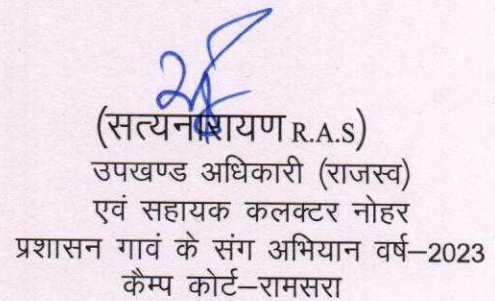 (सत्यनारायण R.A.S)
उपखण्ड अधिकारी (राजस्व)
एवं सहायक कलक्टर नोहर
प्रशासन गावं के संग अभियान वर्ष–2023
कैम्प कोर्ट–रामसरा